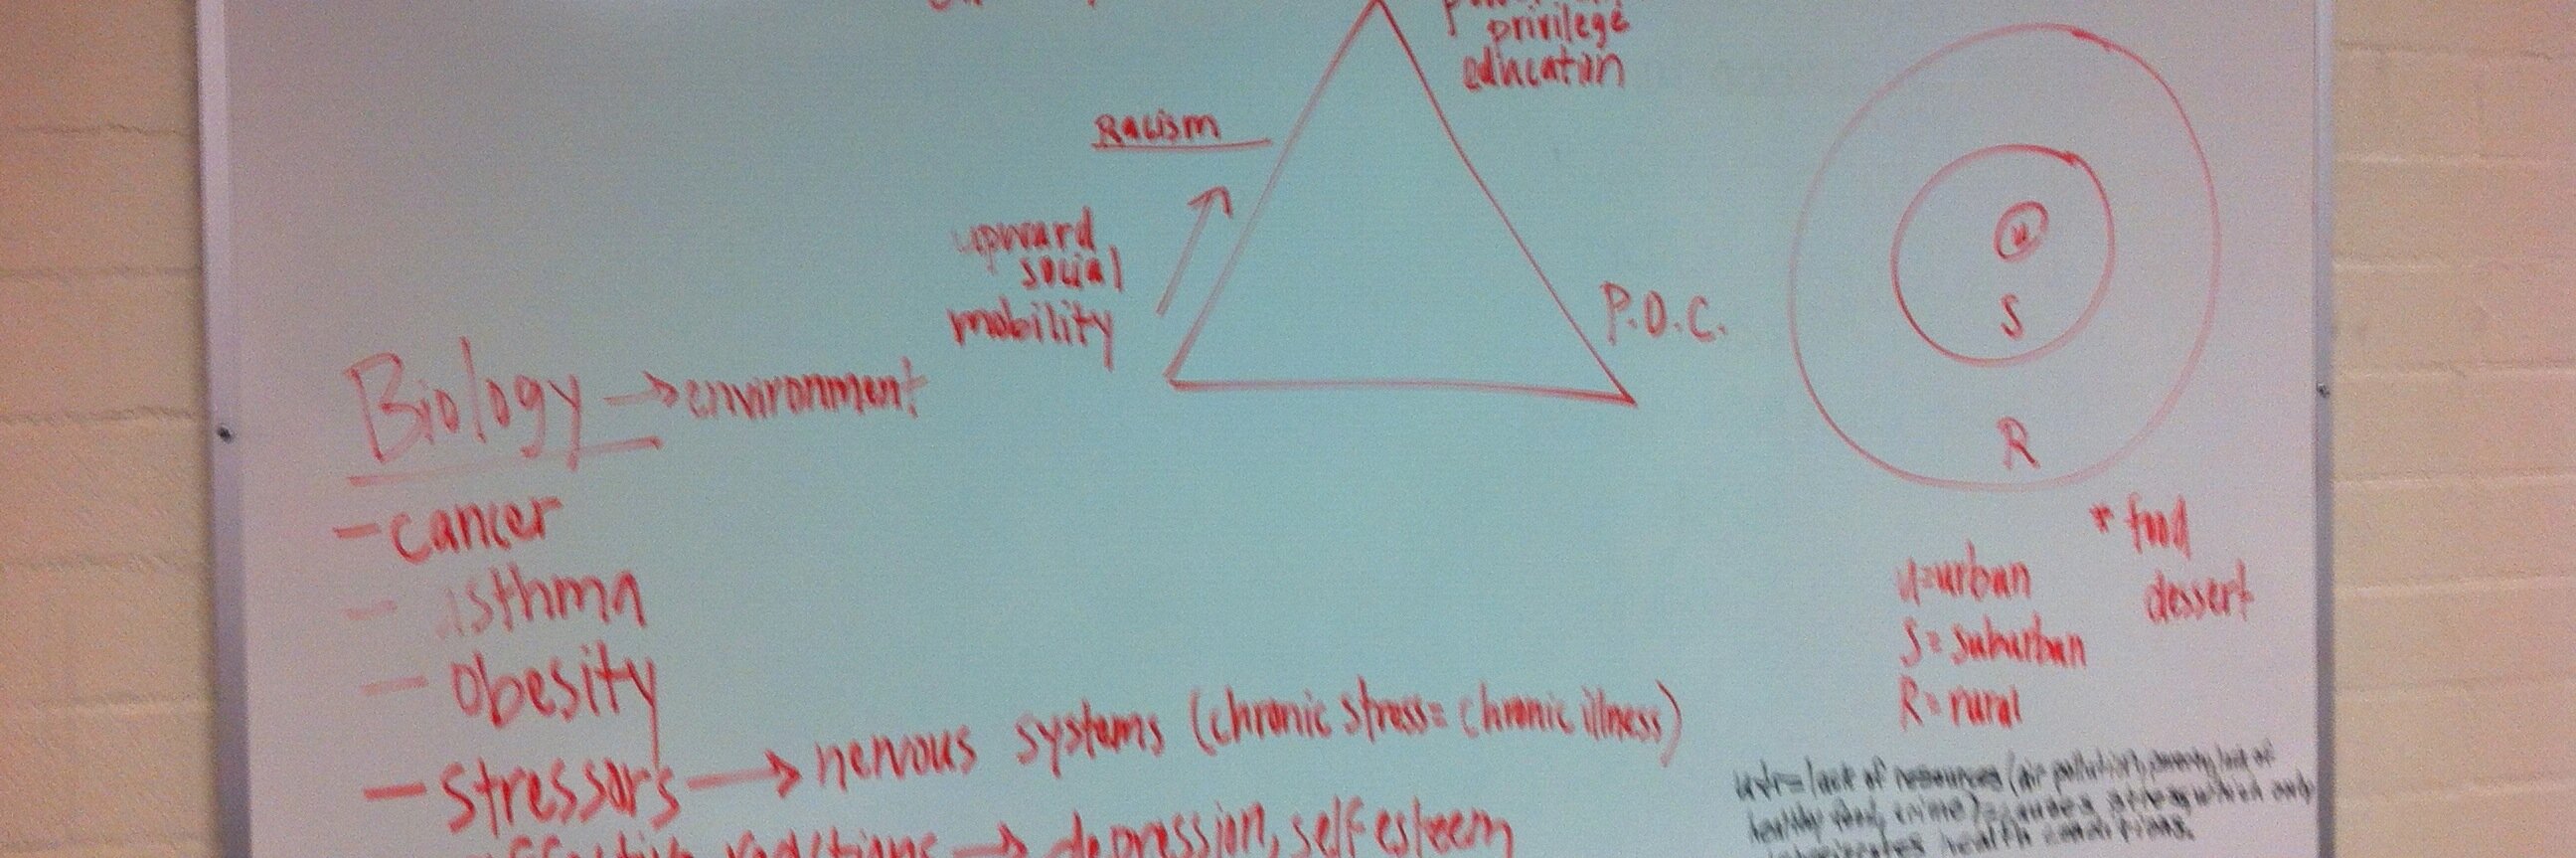 privilege
education
Racism
upward
social
mobility
P.O.C.
u
S
R
Biology → environment
- cancer
- asthma
- obesity
- stressors → nervous systems (chronic stress = chronic illness)
→ depression, self esteem
* food
dessert
u=urban
S = suburban
R = rural
u+r = lack of resources (air pollution, poverty, lack of
healthy food, crime) = causes stress which only
health conditions.